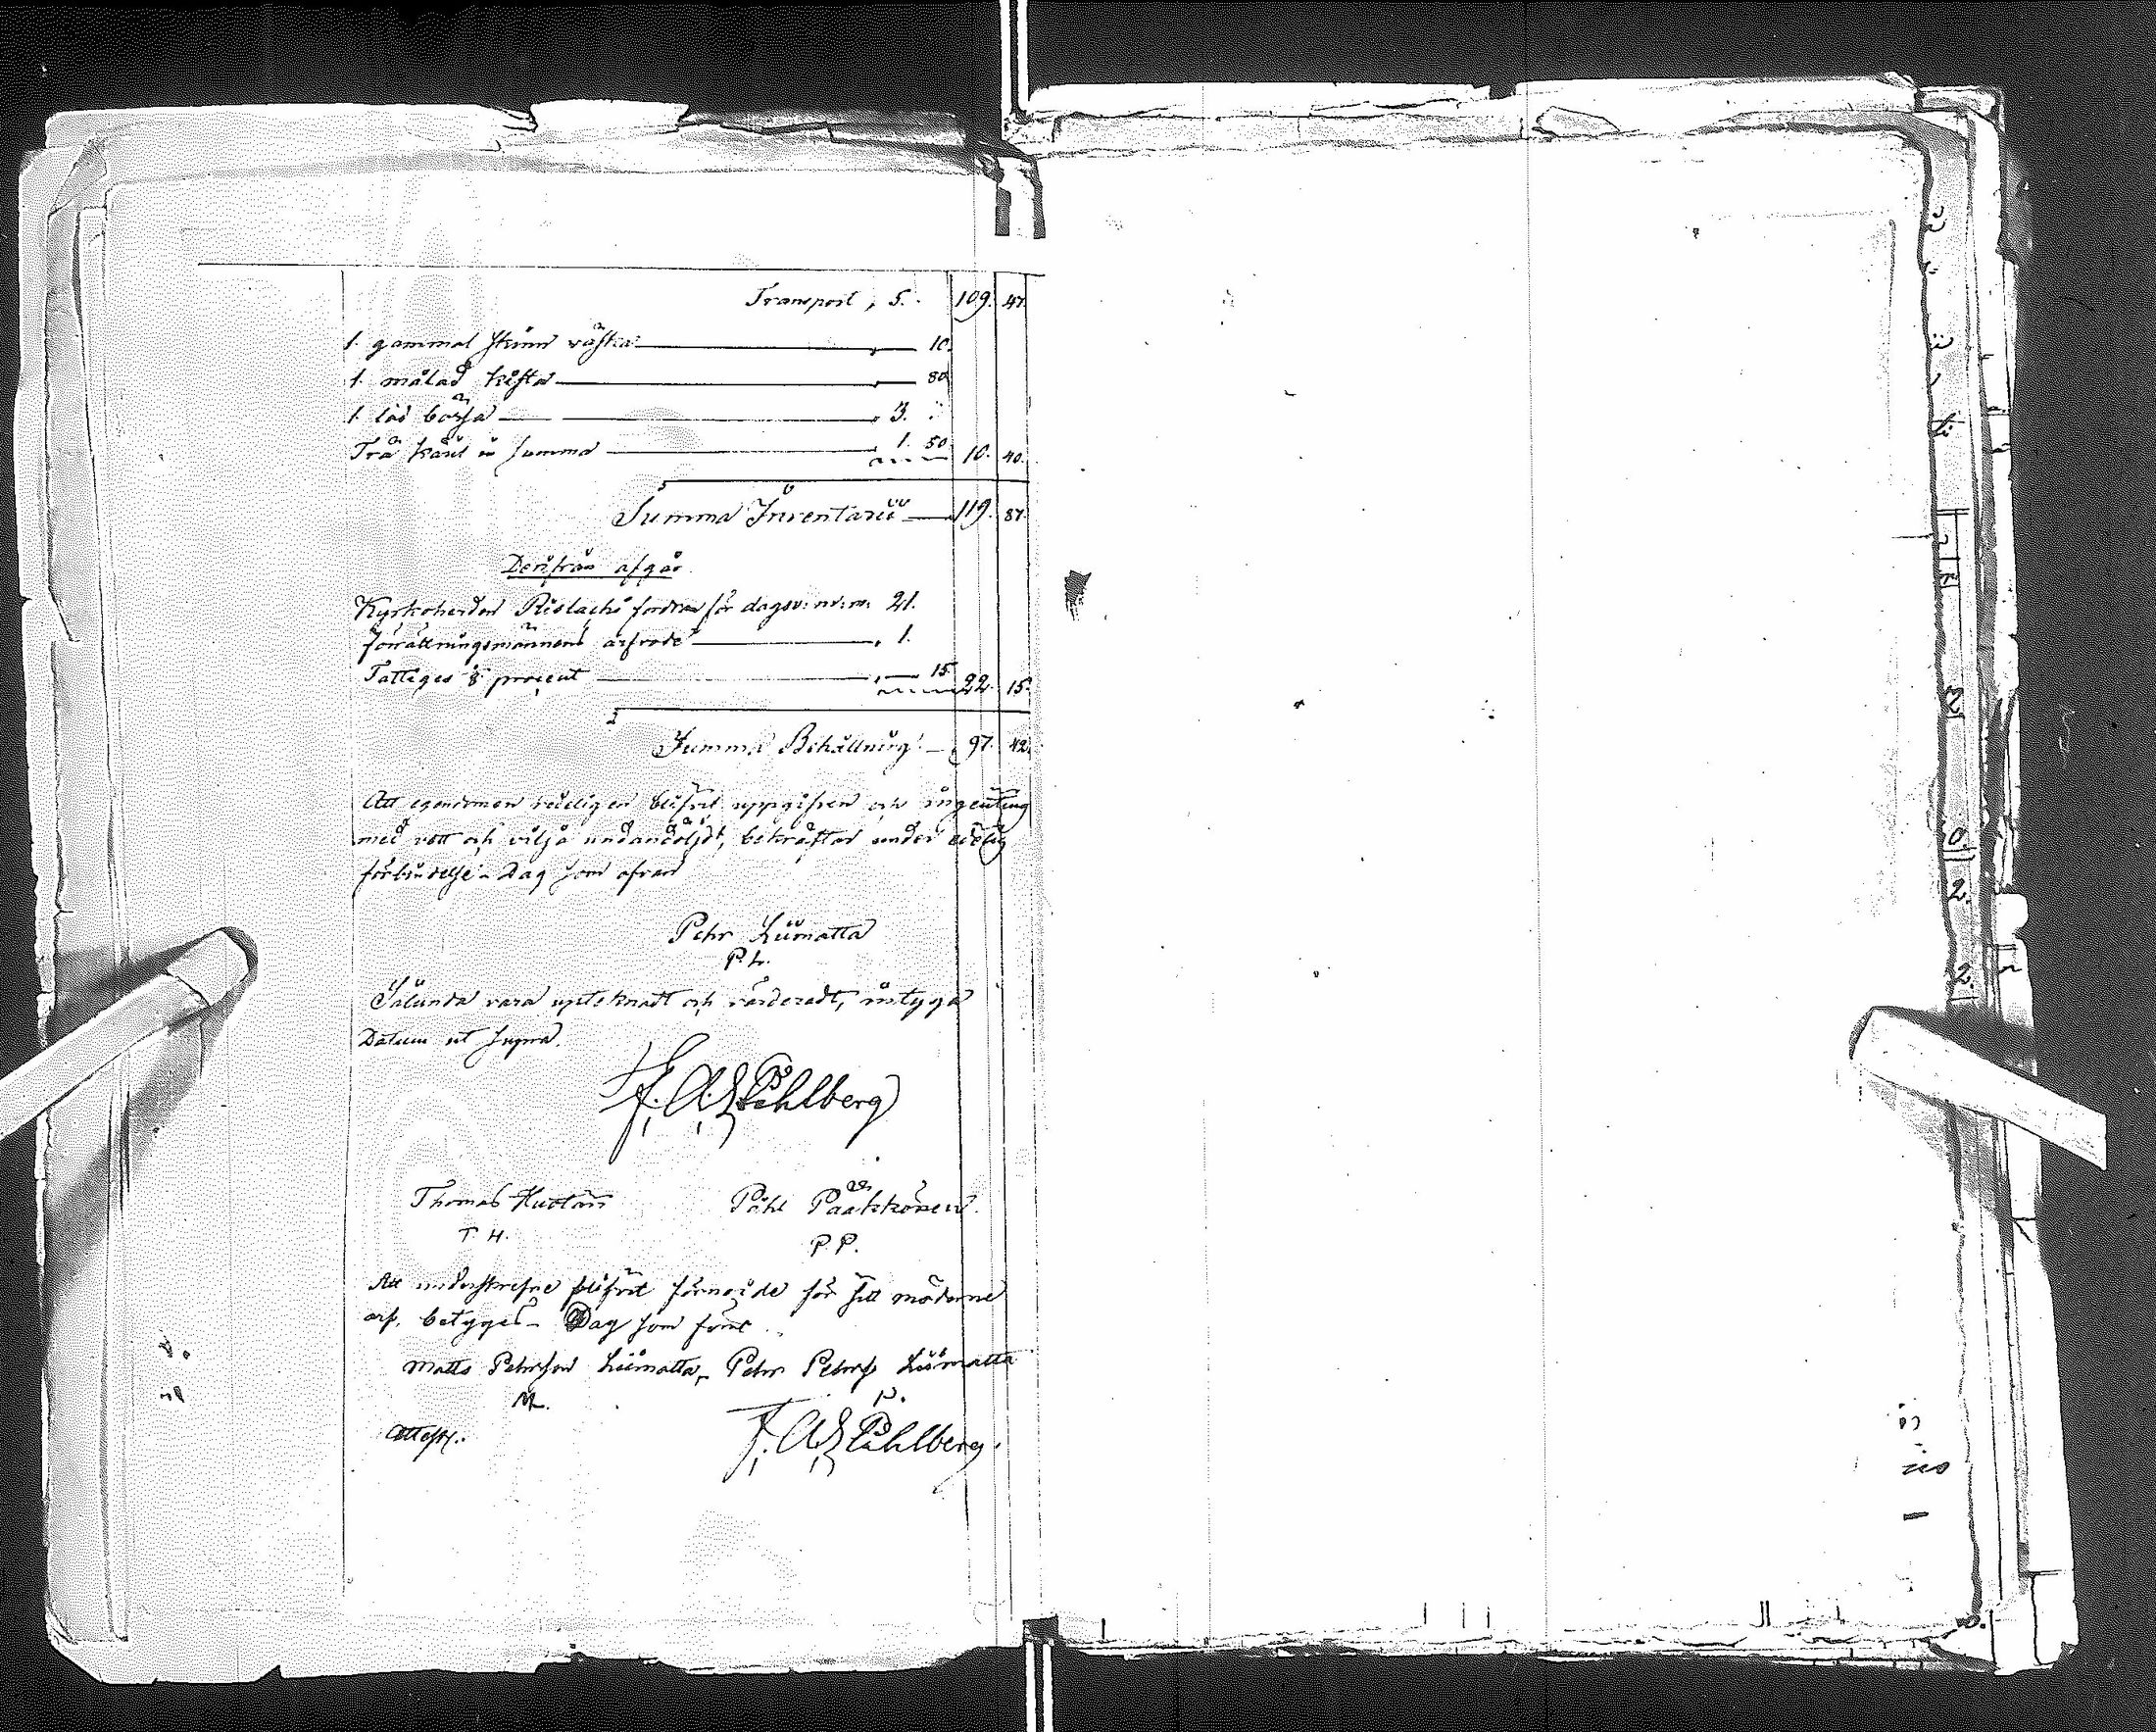 Transport, 5. 109. 47.
1. gammal skinn väska 10.
1. målad kista 80
1. lås börsa 3.
Trä käril i summa 1. 50 10. 40.
Summa Inventarii 119. 87.
Derifrån afgår
Kyrkoherden fordran för 21.
förrättningsmännens arfvode 1.
Fattiges procent 15 22. 15.
Summa Behållning 97. 42.
Att egendomen redeligen blifvit uppgifven och ingenting
med vett och vilja undandöljdt, bekräftar under edelig
förbindelse. Dag som ofvan
Pehr Liimatta
P. L.
Sålunda vara upteknadt och värderadt, intyga
Datum ut supra.
F. A. Ståhlberg
Thomas Huotari Påhl Pääkkönen.
T. H. P. P.
Att underskrefne blifvit förnöjde för sitt möderne
arf, betyges. Dag som förut
Matts Pehrsson Liimatta, Pehr Pehrss Liimatta
M. P.
Attest.
F. A. Ståhlberg.